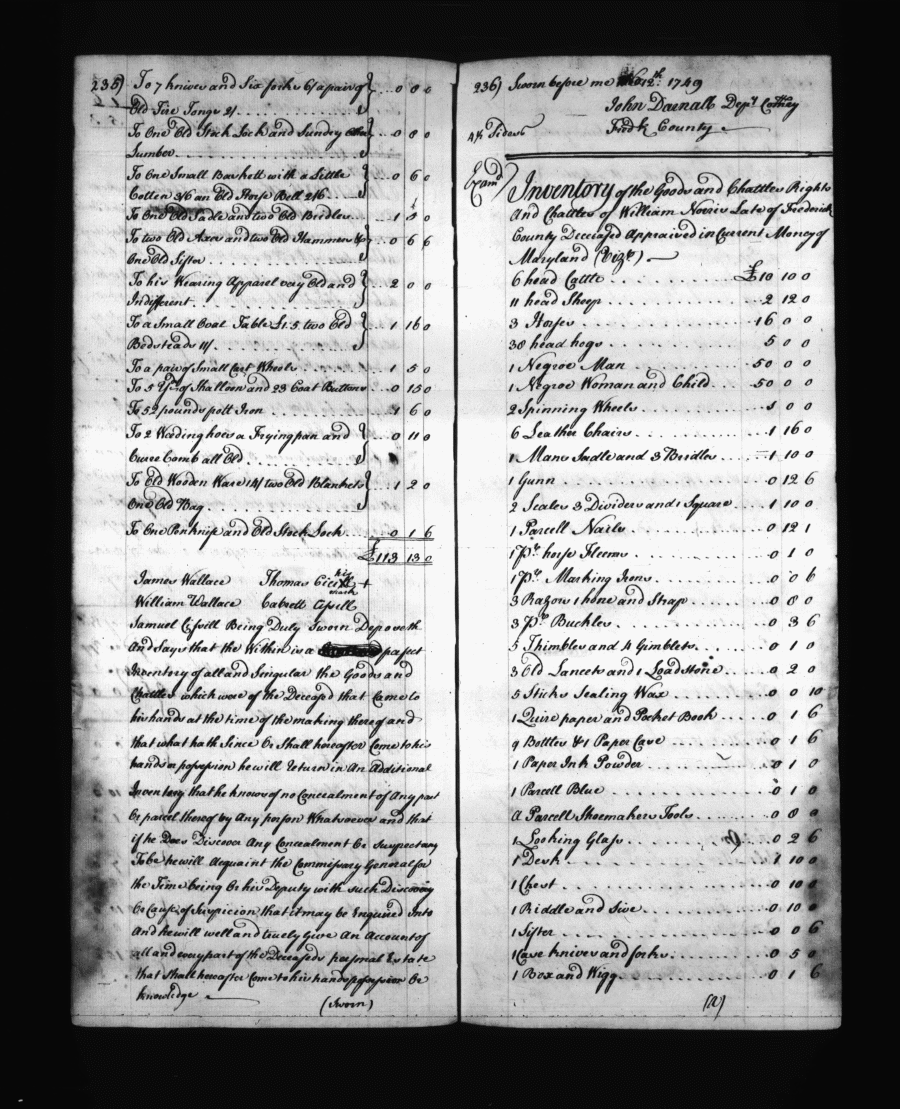 235)
To 7 knives and Six forks 6/ a pair of } 0 8 0
Old Fire Tongs 2/
To One Old Stock Lock and Sundry Old } 0 8 0
Lumber
To One Small Baskett with a Little } 0 6 0
Cotten 3/6 an Old Horse Bell 2/6
To One Old Sadle and two Old Bridles 1 5 0
To two Old Axes and two Old Hammers & } 0 6 6
One Old Sifter
To his Wearing Apparel very Old and } 2 0 0
Indifferent
To a Small Boat Table £1.5 two Old } 1 16 0
Bedsteads 11/
To a pair of Small Cart Wheels 1 5 0
To 5 Yds of Shalloon and 23 Coat Buttons 0 15 0
To 52 pounds pott Iron 1 6 0
To 2 Weeding hoes a Frying pan and } 0 11 0
Curre Comb all Old
To Old Wooden Ware 14/ two Old Blankets } 1 2 0
One Old Bag
To One Penknife and Old Stock Lock 0 1 6
£113 13 0
James Wallace Thomas his + mark
William Wallace
Samuel Being Duly Sworn Deposeth
And Says that the Within is a perfect
Inventory of all and Singular the Goods and
Chattles which were of the Deceased that Came to
his hands at the time of the making thereof and
that what hath Since Or Shall hereafter Come to his
hands or possession he will return in An Additional
Inventory that he knows of no Concealment of Any part
Or parcel thereof by Any person Whatsoever and that
if he Does Discover Any Concealment Or Suspect any
To be he will Acquaint the Commissary General for
the Time being Or his Deputy with such Discovery
Or Cause of Suspicion that it may be Enquired Into
And he will well and truely Give An Account of
all and every part of the Deceaseds personal Estate
that shall hereafter Come to his hands possession Or
knowledge
(Sworn)
236) Sworn before me 12th 1749
John Darnall Depy Comry
Fredk County
4½ Sides
Examd
Inventory of the Goods and Chattles Rights
And Chattles of William Norris Late of Frederick
County Deceased Appraised in Current Money of
Maryland (Vizt)
6 head Cattle £10 10 0
11 head Sheep 2 12 0
3 Horses 16 0 0
38 head hogs 5 0 0
1 Negroe Man 50 0 0
1 Negroe Woman and Child 50 0 0
2 Spinning Wheels 1 0 0
6 Leather Chairs 1 16 0
1 Mans Sadle and 3 Bridles 1 10 0
1 Gunn 0 12 6
2 Scales 3 Dividers and 1 Square 1 10 0
1 Parcell Nails 0 12 1
1 Pr horse Fleems 0 1 0
1 Pr Marking Irons 0 0 6
3 Razors 1 hone and Strap 0 8 0
3 Pr Buckles 0 3 6
5 Thimbles and 4 Gimblets 0 1 0
3 Old Lancets and 1 Loadstone 0 2 0
5 Sticks Sealing Wax 0 0 10
1 Quire paper and Pocket Book 0 1 6
9 Bottles & 1 Paper Case 0 1 6
1 Paper Ink Powder 0 1 0
1 Parcell Blue 0 1 0
A Parcell Shoemakers Tools 0 8 0
1 Looking Glass 0 2 6
1 Desk 1 10 0
1 Chest 0 10 0
1 Riddle and Sive 0 10 0
1 Sifter 0 0 6
1 Case knives and forks 0 5 0
1 Box and Wigg 0 1 6